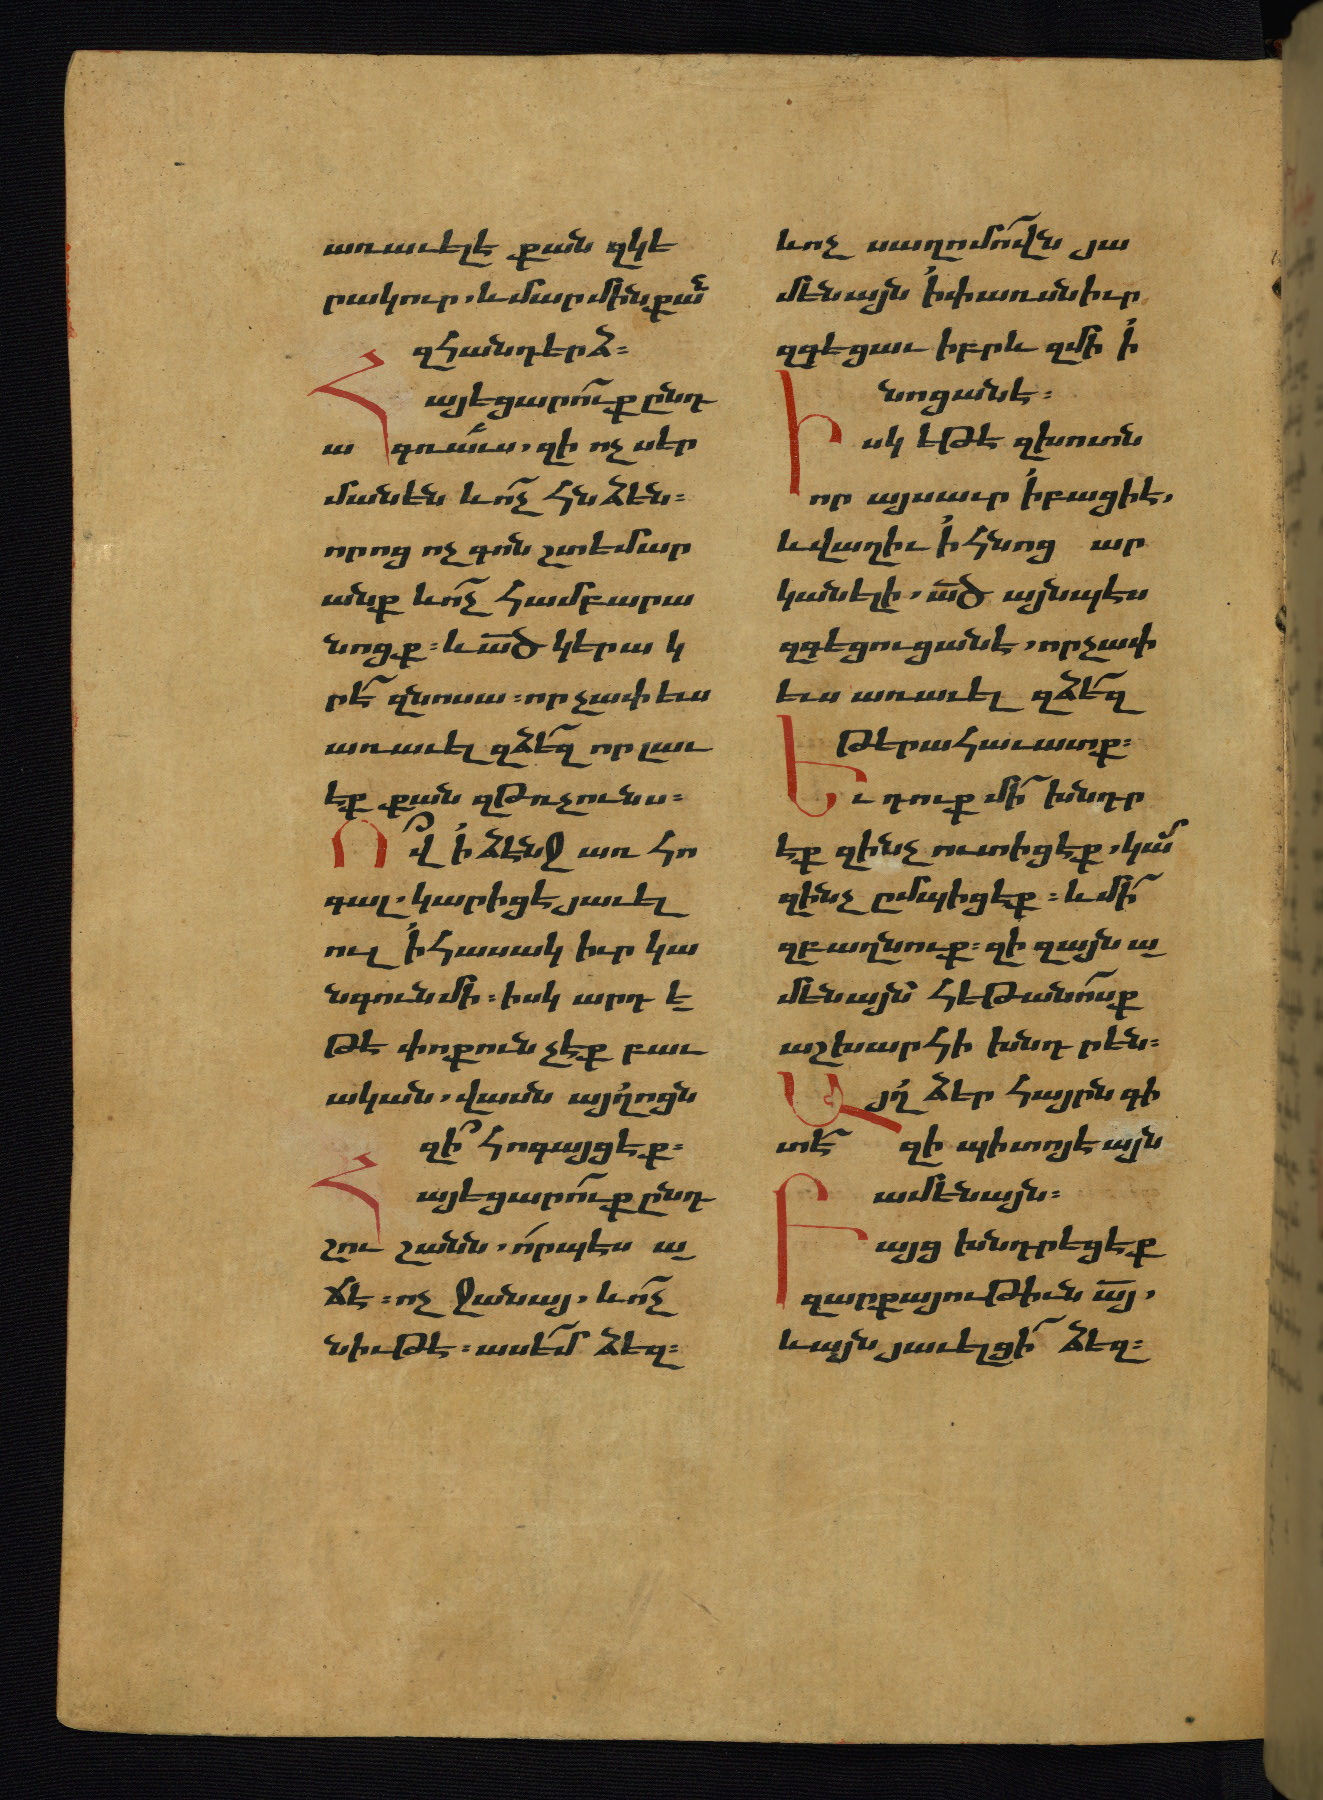 առաւելէ քան զկե
րակուր, և մարմին քա՞ն
զհանդերձ։
Հայեցարո՛ւք ընդ
ագռա՛ւս, զի ոչ սեր
մանեն և ո՛չ հնձեն։
որոց ոչ գոն շտեմար
անք և ո՛չ համբարա
նոցք։ և ած կերակ
րէ՛ զնոսա։ որչափ ևս
առաւել զձե՛զ որ լաւ
էք քան զթռչունս։
Ո՞վ ի ձէնջ առ հո
գալ, կարիցէ յաւել
ուլ ի հասակ իւր կա
նգուն մի։ իսկ արդ ե
թե փոքուն չէք բաւ
ական, վասն այլոցն
զի՞ հոգայցէք։
Հայեցարո՛ւք ընդ
շուշանն, ո՛րպէս ա
ճէ։ ոչ ջանայ, և ո՛չ
նիւթէ։ ասե՛մ ձեզ։
և ոչ սաղոմո՛վն յա
մենայն ի փառսն իւր
զգեցաւ իբրև զմի ի
նոցանէ։
Իսկ եթե զխոտն
որ այսաւր ի բացի է,
և վաղիւ ի հնոց ար
կանելի, ած այնպէս
զգեցուցանէ, որչափ
ևս առաւել զձե՛զ
թերահաւատք։
Եւ դուք մի՛ խնդր
էք զինչ ուտիցէք, կամ
զինչ ըմպիցէք։ և մի՛
զբաղնուք։ զի զայն ա
մենայն հեթանո՛սք
աշխարհի խնդրեն։
Այլ ձեր հայրն գի
տէ՛ զի պիտոյէ այն
ամենայն։
Բայց խնդրեցէք
զարքայութիւն այ,
և այն յաւելցի՛ ձեզ։